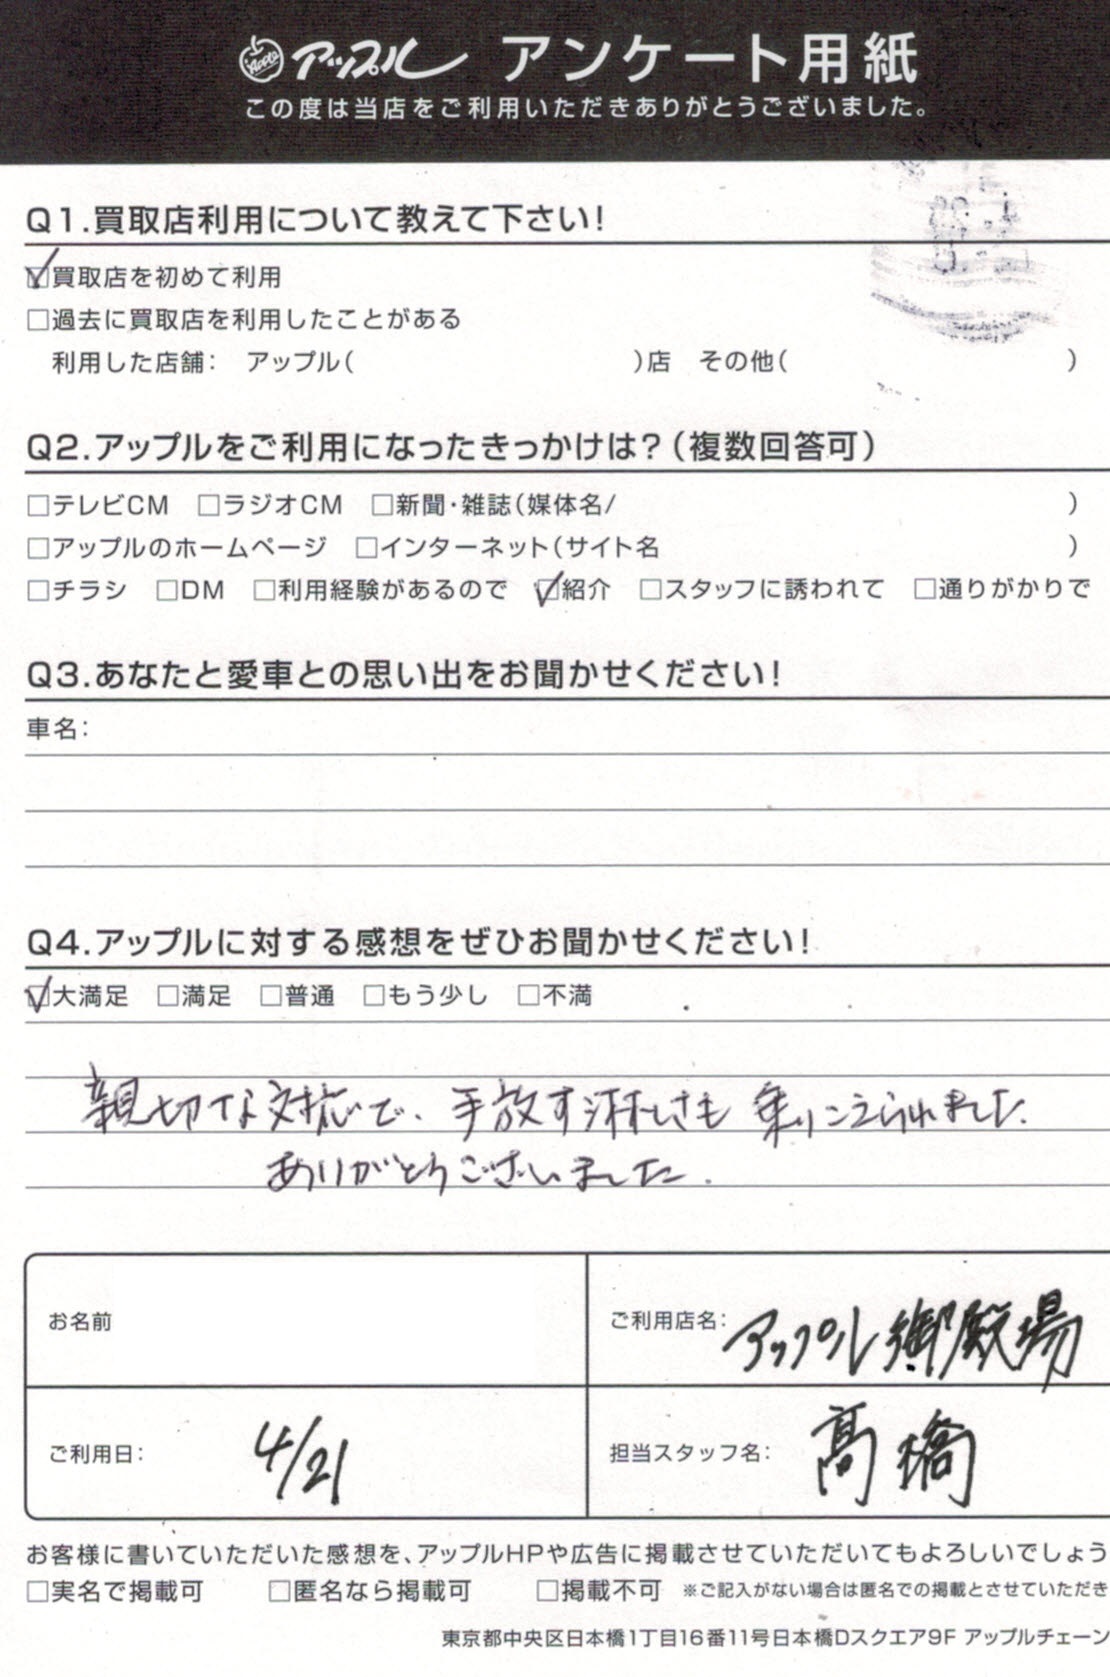 アップル アンケート用紙
この度は当店をご利用いただきありがとうございました。
Q1.買取店利用について教えて下さい!
☑買取店を初めて利用
□過去に買取店を利用したことがある
利用した店舗: アップル( )店 その他( )
Q2.アップルをご利用になったきっかけは?(複数回答可)
□テレビCM □ラジオCM □新聞・雑誌(媒体名/ )
□アップルのホームページ □インターネット(サイト名 )
□チラシ □DM □利用経験があるので ☑紹介 □スタッフに誘われて □通りがかりで
Q3.あなたと愛車との思い出をお聞かせください!
車名:
Q4.アップルに対する感想をぜひお聞かせください!
☑大満足 □満足 □普通 □もう少し □不満
親切な対応で、手放す淋しさも乗りこえられました。
ありがとうございました。
お名前
ご利用店名: アップル御殿場
ご利用日: 4/21
担当スタッフ名: 髙橋
お客様に書いていただいた感想を、アップルHPや広告に掲載させていただいてもよろしいでしょう
□実名で掲載可 □匿名なら掲載可 □掲載不可 ※ご記入がない場合は匿名での掲載とさせていただき
東京都中央区日本橋1丁目16番11号日本橋Dスクエア9F アップルチェーン